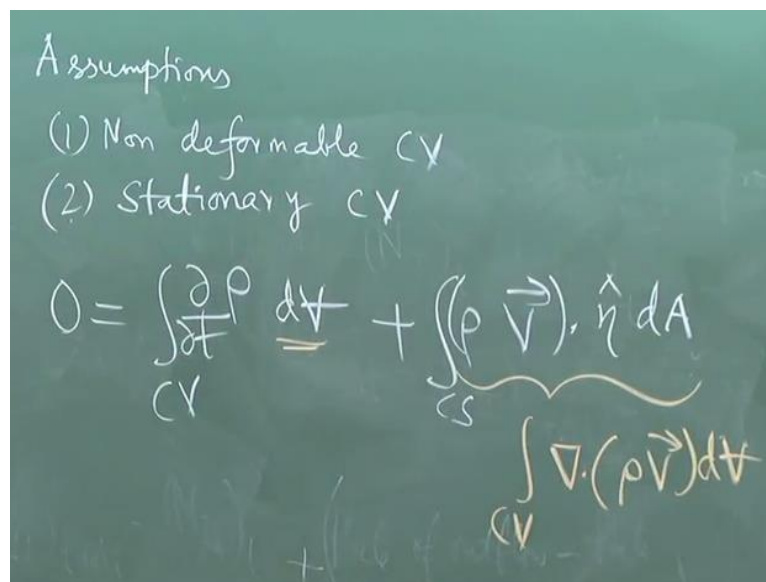 Assumptions
(1) Non deformable CV
(2) Stationary CV
0 = ∫_CV ∂ρ/∂t dV̶ + ∫_CS (ρ V⃗). η̂ dA
∫_CV ∇.(ρV⃗)dV̶